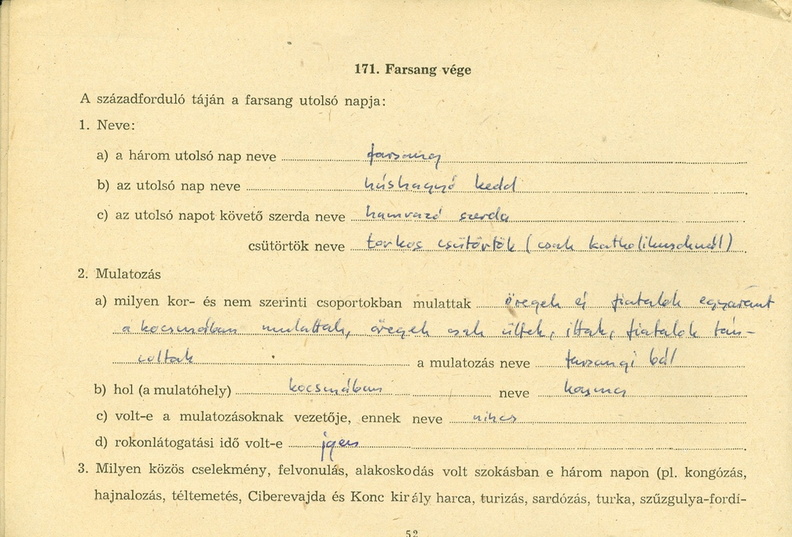 171. Farsang vége
A századforduló táján a farsang utolsó napja:
1. Neve:
a) a három utolsó nap neve farsang
b) az utolsó nap neve húshagyó kedd
c) az utolsó napot követő szerda neve hamvazó szerda
csütörtök neve torkos csütörtök (csak katholikusoknál)
2. Mulatozás
a) milyen kor- és nem szerinti csoportokban mulattak öregek és fiatalok egyaránt
a kocsmában mulattak, öregek csak ültek, ittak, fiatalok tán-
coltak a mulatozás neve farsangi bál
b) hol (a mulatóhely) kocsmában neve
c) volt-e a mulatozásoknak vezetője, ennek neve nincs
d) rokonlátogatási idő volt-e igen
3. Milyen közös cselekmény, felvonulás, alakoskodás volt szokásban e három napon (pl. kongózás,
hajnalozás, téltemetés, Ciberevajda és Konc király harca, turizás, sardózás, turka, szűzgulya-fordí-
52